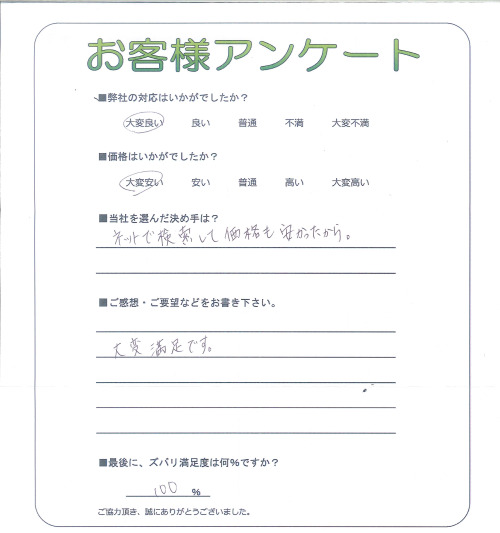 お客様アンケート
■弊社の対応はいかがでしたか？
大変良い 良い 普通 不満 大変不満
■価格はいかがでしたか？
大変安い 安い 普通 高い 大変高い
■当社を選んだ決め手は？
ネットで検索して価格も安かったから。
■ご感想・ご要望などをお書き下さい。
大変満足です。
■最後に、ズバリ満足度は何％ですか？
100 %
ご協力頂き、誠にありがとうございました。